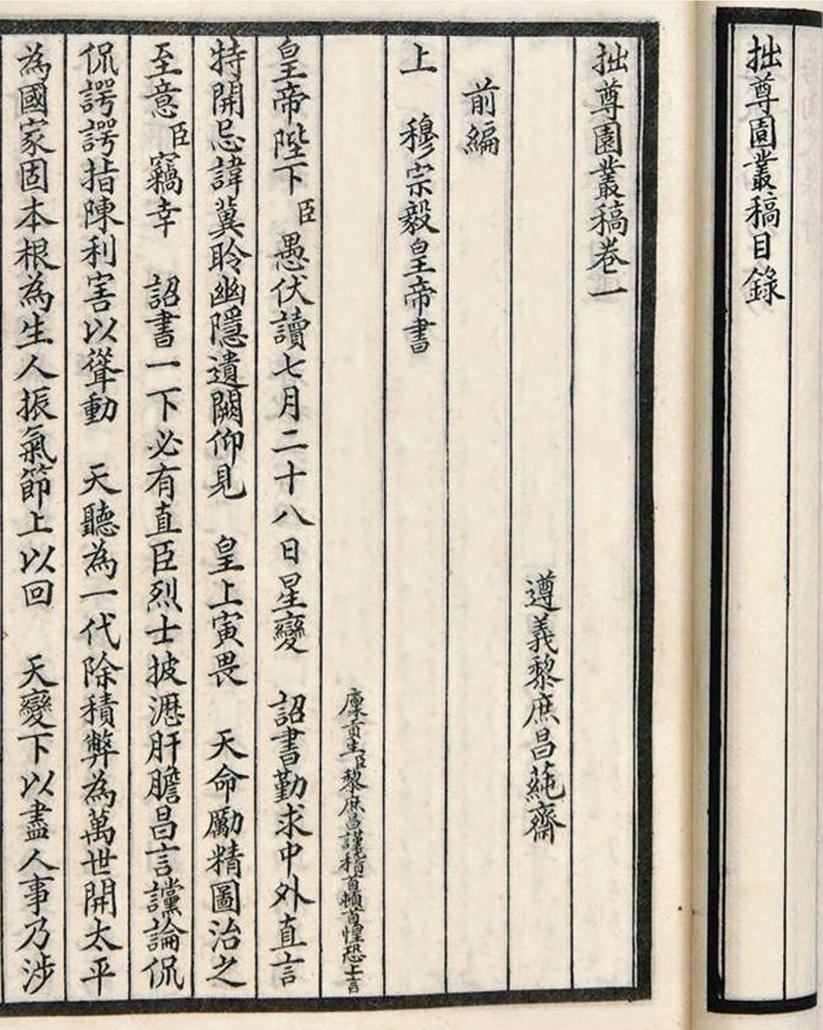 拙尊園叢稿目錄
拙尊園叢稿卷一
遵義黎庶昌蒓齋
前編
上　穆宗毅皇帝書
廩貢生臣黎庶昌謹稽首頓首惶恐上言
皇帝陛下臣愚伏讀七月二十八日星變　詔書勤求中外直言
特開忌諱冀聆幽隱遺闕仰見　皇上寅畏　天命勵精圖治之
至意臣竊幸　詔書一下必有直臣烈士披瀝肝膽昌言讜論侃
侃諤諤指陳利害以聳動　天聽為一代除積弊為萬世開太平
為國家固本根為生人振氣節上以回　天變下以盡人事乃涉